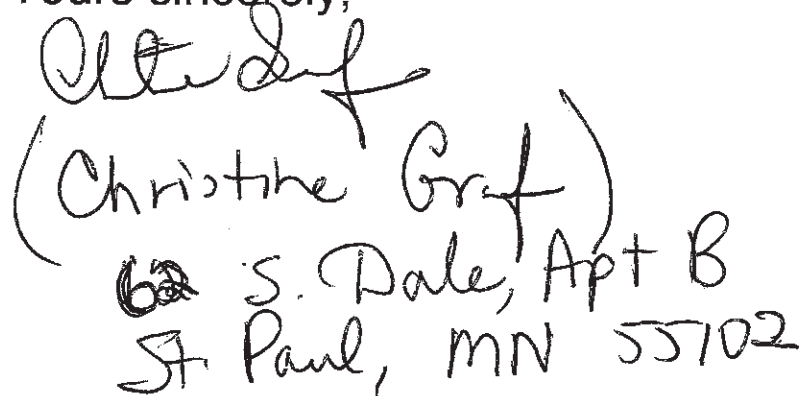 Yours sincerely,
(Christine Graf)
62 S. Dale, Apt B
St Paul, MN 55102